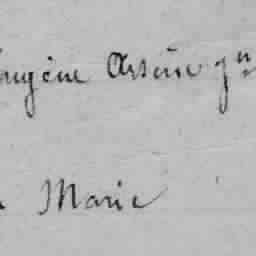 Eugène Arsène
Marie